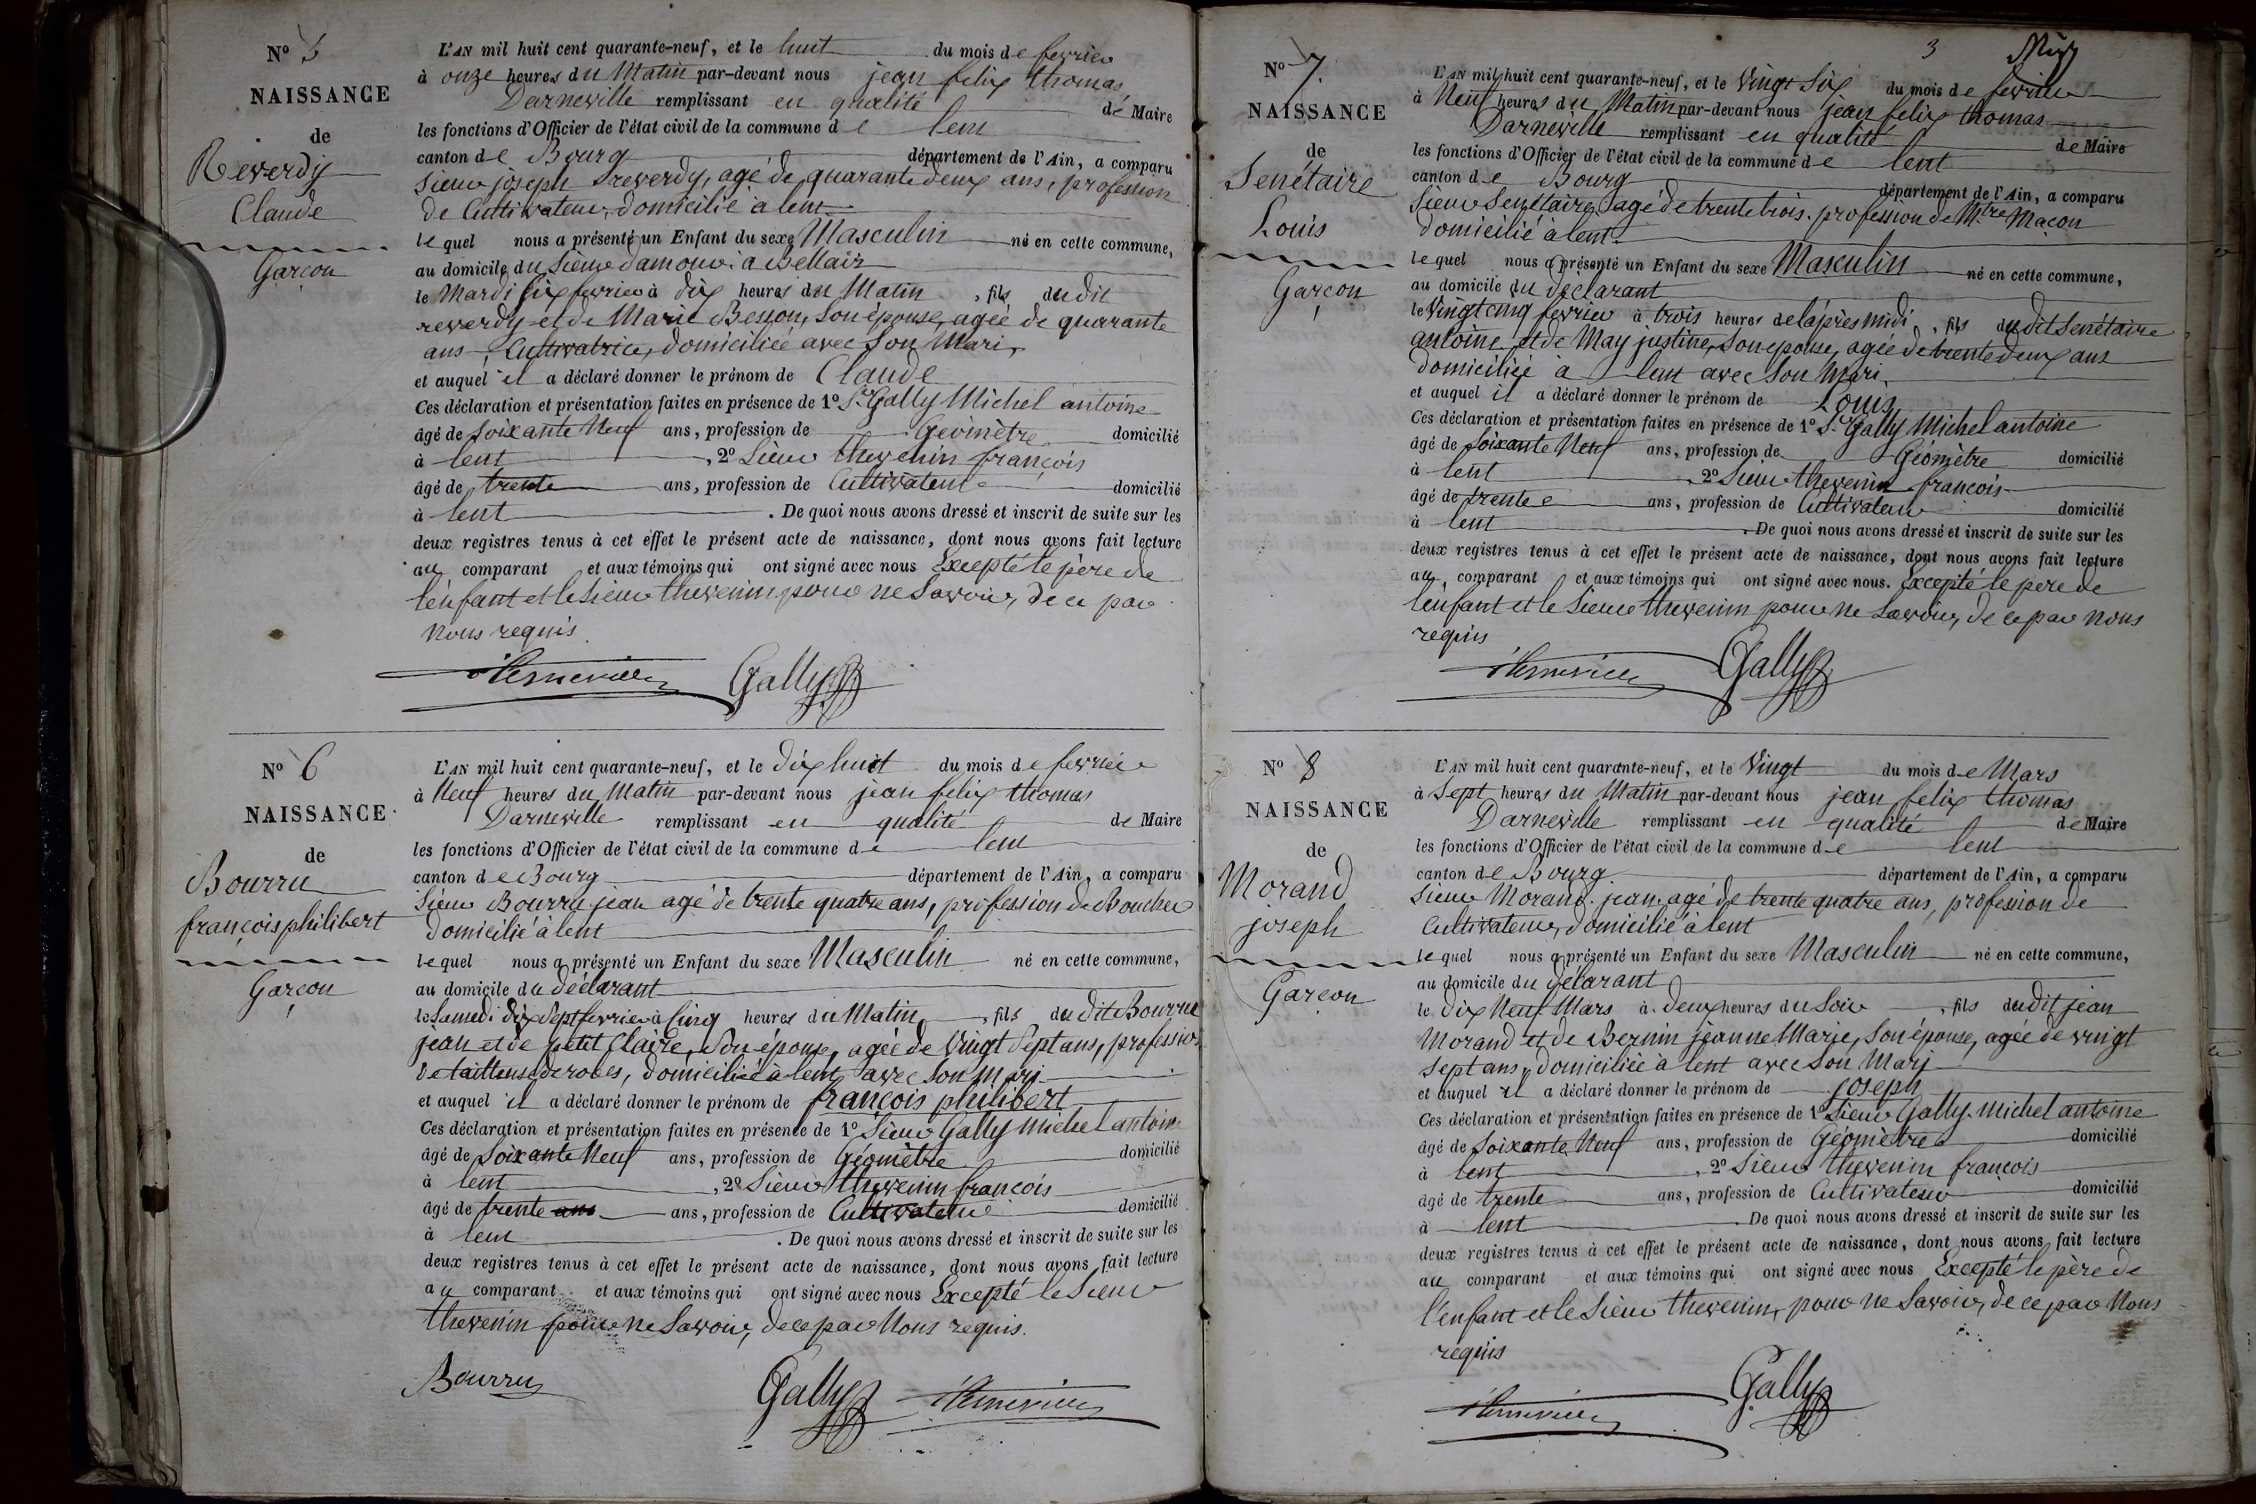 N° 5
NAISSANCE
de
Reverdy
Claude
Garçon
L'AN mil huit cent quarante-neuf, et le huit du mois de fevrier
à onze heures du Matin par-devant nous jean felix thomas
Darneville remplissant en qualité de Maire
les fonctions d'Officier de l'état civil de la commune de lent
canton de Bourg département de l'Ain, a comparu
Sieur joseph reverdy, agé de quarante deux ans, profession
de Cultivateur, domicilié à lent
lequel nous a présenté un Enfant du sexe Masculin né en cette commune,
au domicile du Sieur damour à Bellair
le Mardi six fevrier à dix heures du Matin, fils du dit
reverdy et de Marie Besson, son épouse, agée de quarante
ans, Cultivatrice, domiciliée avec son Mari,
et auquel il a déclaré donner le prénom de Claude
Ces déclaration et présentation faites en présence de 1° Sr Gally Michel antoine
âgé de soixante Neuf ans, profession de Geomètre domicilié
à lent, 2° Sieur thevenin françois
âgé de trente ans, profession de Cultivateur domicilié
à lent. De quoi nous avons dressé et inscrit de suite sur les
deux registres tenus à cet effet le présent acte de naissance, dont nous avons fait lecture
au comparant et aux témoins qui ont signé avec nous Excepté le père de
l'enfant et le Sieur thevenin pour ne savoir, de ce par
nous requis.
Gally
N° 6
NAISSANCE
de
Bourru
françois philibert
Garçon
L'AN mil huit cent quarante-neuf, et le dix huit du mois de fevrier
à Neuf heures du Matin par-devant nous jean felix thomas
Darneville remplissant en qualité de Maire
les fonctions d'Officier de l'état civil de la commune de lent
canton de Bourg département de l'Ain, a comparu
Sieur Bourru jean agé de trente quatre ans, profession de Boucher
domicilié à lent
lequel nous a présenté un Enfant du sexe Masculin né en cette commune,
au domicile du déclarant
le Samedi dix Sept fevrier à Cinq heures du Matin, fils du dit Bourru
jean et de petit Claire, son épouse, agée de Vingt Sept ans, profession
de tailleuse de robes, domiciliée à lent avec son mari
et auquel il a déclaré donner le prénom de françois philibert
Ces déclaration et présentation faites en présence de 1° Sieur Gally Michel antoine
âgé de Soixante Neuf ans, profession de Géomètre domicilié
à lent, 2° Sieur thevenin françois
âgé de trente ans ans, profession de Cultivateur domicilié
à lent. De quoi nous avons dressé et inscrit de suite sur les
deux registres tenus à cet effet le présent acte de naissance, dont nous avons fait lecture
au comparant et aux témoins qui ont signé avec nous Excepté le Sieur
thevenin pour ne Savoir, de ce par Nous requis.
Bourru Gally
3
N° 7
NAISSANCE
de
Senétaire
Louis
Garçon
L'AN mil huit cent quarante-neuf, et le Vingt Six du mois de fevrier
à Neuf heures du Matin par-devant nous jean felix thomas
Darneville remplissant en qualité de Maire
les fonctions d'Officier de l'état civil de la commune de lent
canton de Bourg département de l'Ain, a comparu
Sieur Senetaire agé de trente trois. profession de Mtre Maçon
domicilié à lent.
lequel nous a présenté un Enfant du sexe Masculin né en cette commune,
au domicile du declarant
le Vingt cinq fevrier à trois heures de l'après midi, fils du dit Senétaire
antoine, et de May justine, son epouse, agée de trente deux ans
domiciliée à lent avec son Mari,
et auquel il a déclaré donner le prénom de Louis
Ces déclaration et présentation faites en présence de 1° Sr Gally Michel antoine
âgé de Soixante Neuf ans, profession de Géomètre domicilié
à lent, 2° Sieur thevenin françois
âgé de trente ans, profession de Cultivateur domicilié
à lent. De quoi nous avons dressé et inscrit de suite sur les
deux registres tenus à cet effet le présent acte de naissance, dont nous avons fait lecture
au comparant et aux témoins qui ont signé avec nous. Excepté le père de
l'enfant et le Sieur thevenin pour ne savoir, de ce par nous
requis
Gally
N° 8
NAISSANCE
de
Morand
joseph
Garçon
L'AN mil huit cent quarante-neuf, et le Vingt du mois de Mars
à Sept heures du Matin par-devant nous jean felix thomas
Darneville remplissant en qualité de Maire
les fonctions d'Officier de l'état civil de la commune de lent
canton de Bourg département de l'Ain, a comparu
Sieur Morand jean agé de trente quatre ans, profession de
Cultivateur, domicilié à lent
lequel nous a présenté un Enfant du sexe Masculin né en cette commune,
au domicile du déclarant
le dix Neuf Mars à deux heures du Soir, fils du dit jean
Morand et de Bernin jeanne Marie, son épouse, agée de vingt
sept ans, domiciliée à lent avec son Mari
et auquel il a déclaré donner le prénom de joseph
Ces déclaration et présentation faites en présence de 1° Sieur Gally Michel antoine
âgé de Soixante Neuf ans, profession de Géomètre domicilié
à lent, 2° Sieur thevenin françois
âgé de trente ans, profession de Cultivateur domicilié
à lent. De quoi nous avons dressé et inscrit de suite sur les
deux registres tenus à cet effet le présent acte de naissance, dont nous avons fait lecture
au comparant et aux témoins qui ont signé avec nous Excepté le père de
l'enfant et le Sieur thevenin, pour ne Savoir, de ce par Nous
requis
Gally